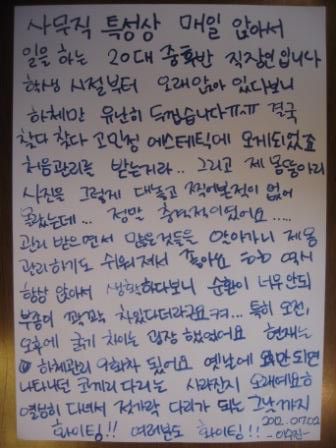 사무직 특성상 매일 앉아서
일을 하는 20대 중후반 직장인입니다
학생 시절부터 오래앉아 있다보니
하체만 유난히 두껍습니다ㅠㅠ 결국
찾다 찾다 고민정 에스테틱에 오게되었죠
처음관리를 받는거라.. 그리고 제 몸뚱아리
사진을 그렇게 대놓고 찍어본적이 없어
몰랐는데... 정말 충격적이었어요.....
관리 받으면서 많은것들을 알아가니 제몸
관리하기도 쉬워져서 좋아요 역시
항상 앉아서 생활하다보니 순환이 너무안되
부종이 꽉꽉 차있다더라구요ㅋㅋ... 특히 오전,
오후에 굵기 차이는 굉장 했었어요 현재는
하체관리 9회차 됬어요 옛날에 오후만 되면
나타나던 코끼리 다리는 사라진지 오래예요ㅎ
열심히 다녀서 젓가락 다리가 되는 그날까지
화이팅!! 여러분도 화이팅!!
2012.07.02